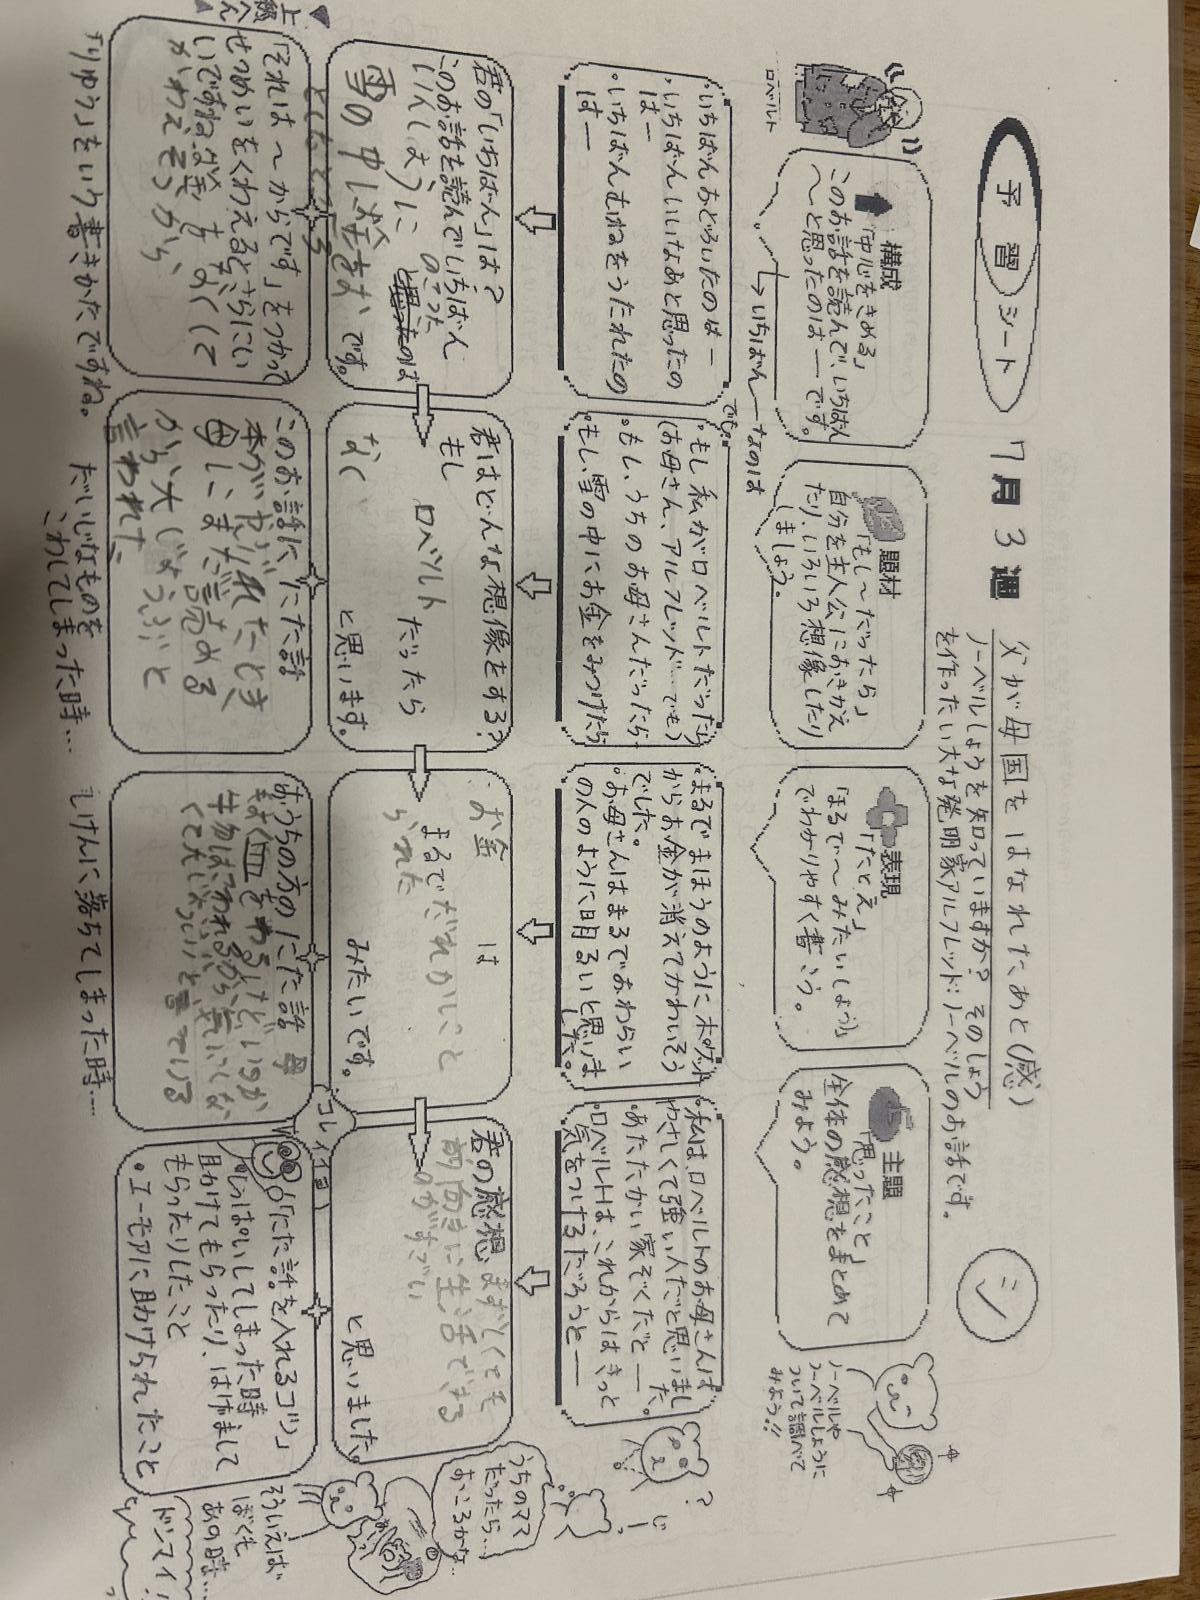 予習シート
7月3週
父が母国をはなれたあと(感)
ノーベルしょうを知っていますか? そのしょう
を作った大な発明家アルフレッド・ノーベルのお話です。
シ
ロベルト
構成
「中心をきめる」
このお話を読んで、いちばん
〜と思ったのは──です。
→いちばん──なのは
題材
「もし〜だったら」
自分を主人公におきかえ
たり、いろいろ想像したり
しましょう。
表現
「たとえ」
「まるで〜みたい(しょう)」
でわかりやすく書こう。
主題
「思ったこと」
全体の感想をまとめて
みよう。
ノーベルや
ノーベルしょうに
ついて調べて
みよう!!
・いちばんおどろいたのは─
・いちばんいいなあと思ったの
は─
・いちばんむねをうたれたの
は─
でも
・もし私がロベルトだったら
(お母さん、アルフレッド でも)
・もし、うちのお母さんだったら
・もし、雪の中にお金をみつけたら
・まるでまほうのようにポケット
からお金が消えてかわいそう
でした。
・お母さんはまるでおわらい
の人のように明るいと思いま
した。
・私は、ロベルトのお母さんは
やさしくて強い人だと思いまし
た。
・あたたかい家ぞくだと──
・ロベルトは、これからはきっと
気をつけるだろうと──
?
じー
君の「いちばん」は?
このお話を読んでいちばん
いんしょうに のこった
のは
雪の中に
です。
君はどんな想像をする?
もし
ロベルト だったら
なく
と思います。
お金 は
まるでだれかにと
られた
みたいです。
君の感想
まずしくても
前向きに生活できる
のがすごい
と思いました。
うちのママ
だったら…
おこるかな…
▼上級へ▲
「それは〜からです」をつかって
せつめいをくわえるとさらにい
いですね。
かわえそうから、
「りゆう」をいう書きかたですね。
このお話にた話
本がやぶれたとき
母にまだ読める
から大じょうぶと
言われた
だいじなものを
こわしてしまった時…
おうちの方のにた話 母
よく皿をわるけどいつか
くて大じょうぶいと言っている
しけんに落ちてしまった時…
コレイイヨ
「にた話を入れるコツ」
・しっぱいしてしまった時
助けてもらったり、はげまして
もらったりしたこと
・ユーモアに助けられたこと
そういえば
ぼくも
あの時…
ドンマイ!